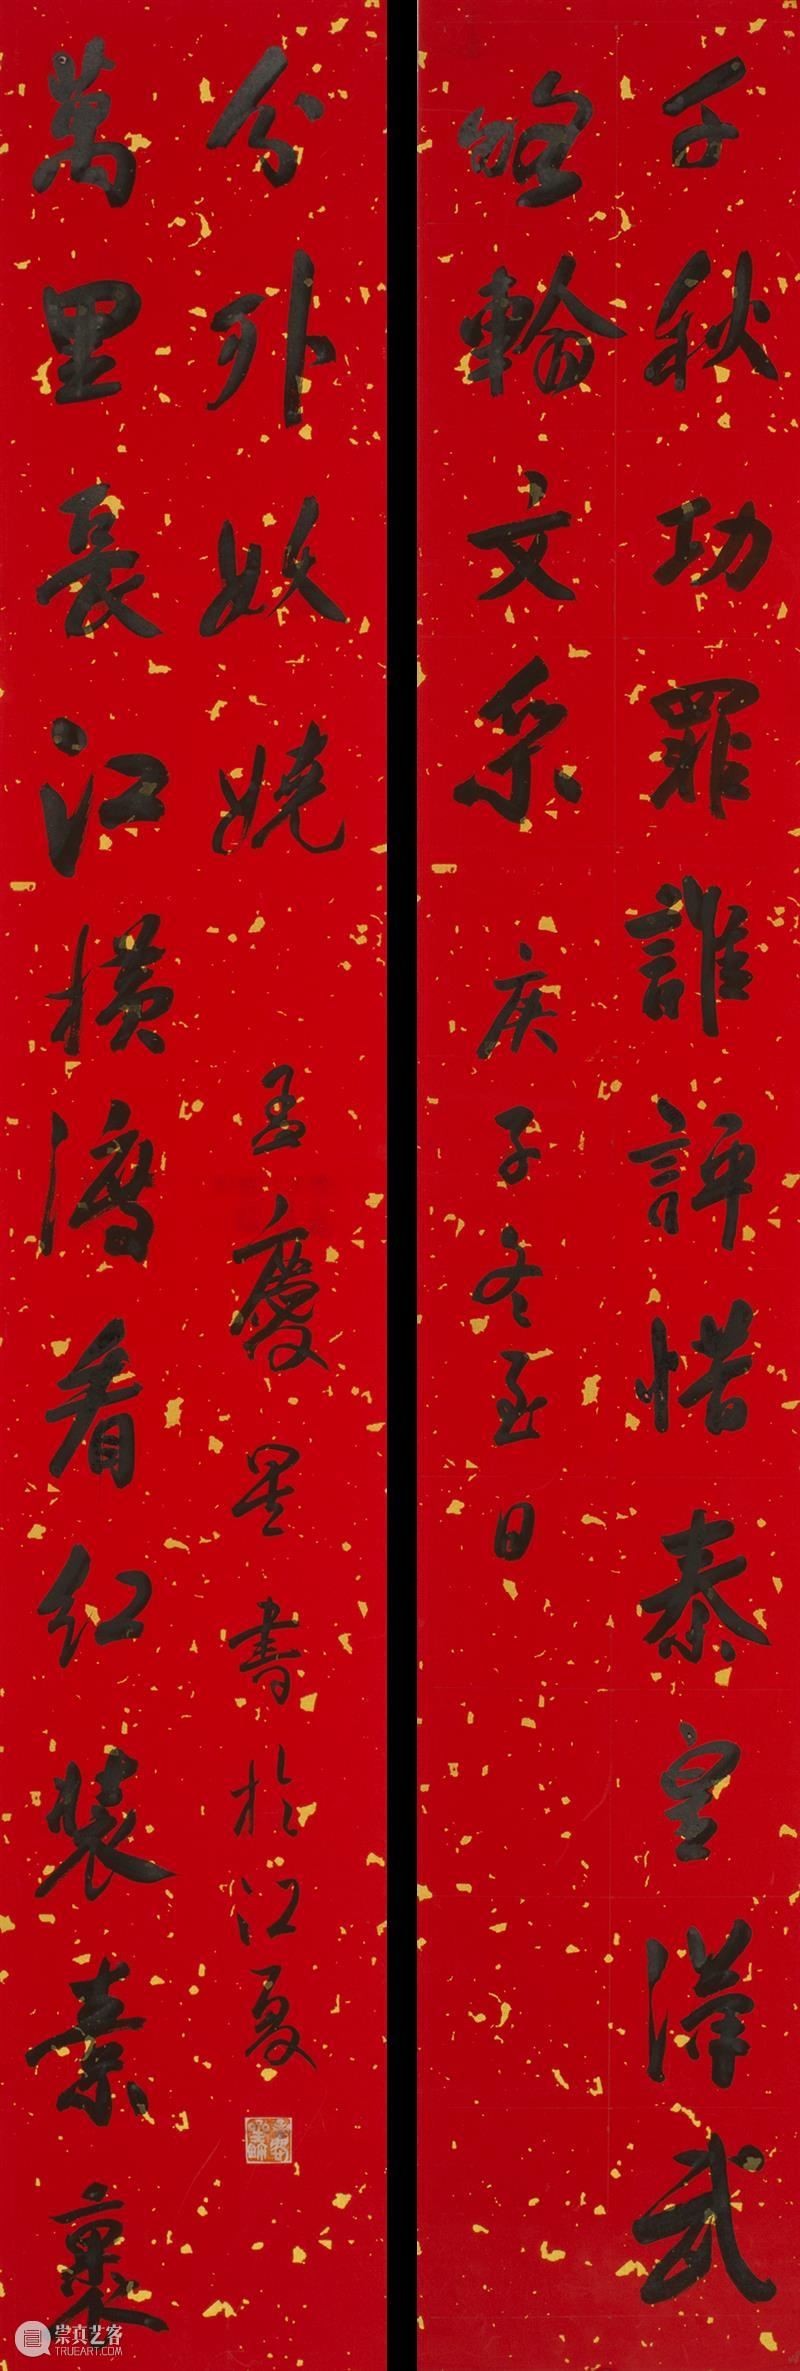 千秋功罪誰評惜秦皇漢武
略輸文采
庚子冬至日
萬里長江橫渡看紅裝素裹
分外妖嬈
孟慶星書於江夏
崇真艺客
TRUEART.COM